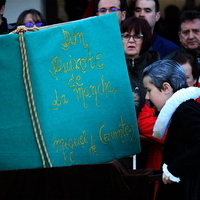 Don
Quixote
de
La Mancha
Miguel
de Cervantes